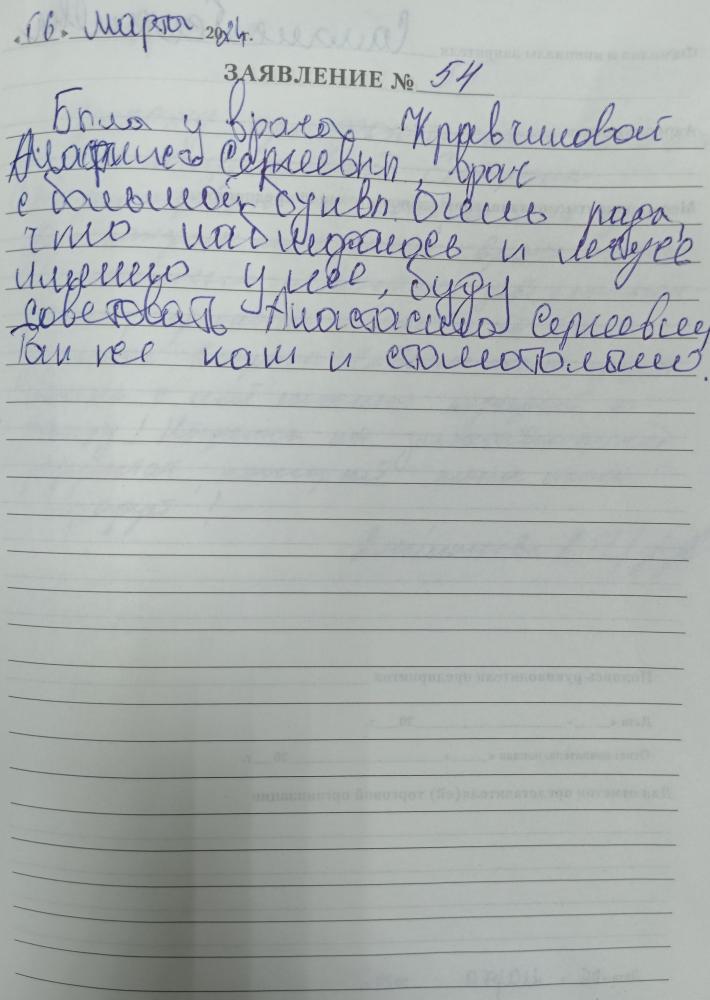 «16» марта 2024г.
ЗАЯВЛЕНИЕ № 54
Была у врача Кравчиновой
Анастасии Сергеевны, врач
с большой буквы. Очень рада,
что наблюдаюсь и лечусь
именно у нее, буду
советовать Анастасию Сергеевну
Так же как и стоматолога.